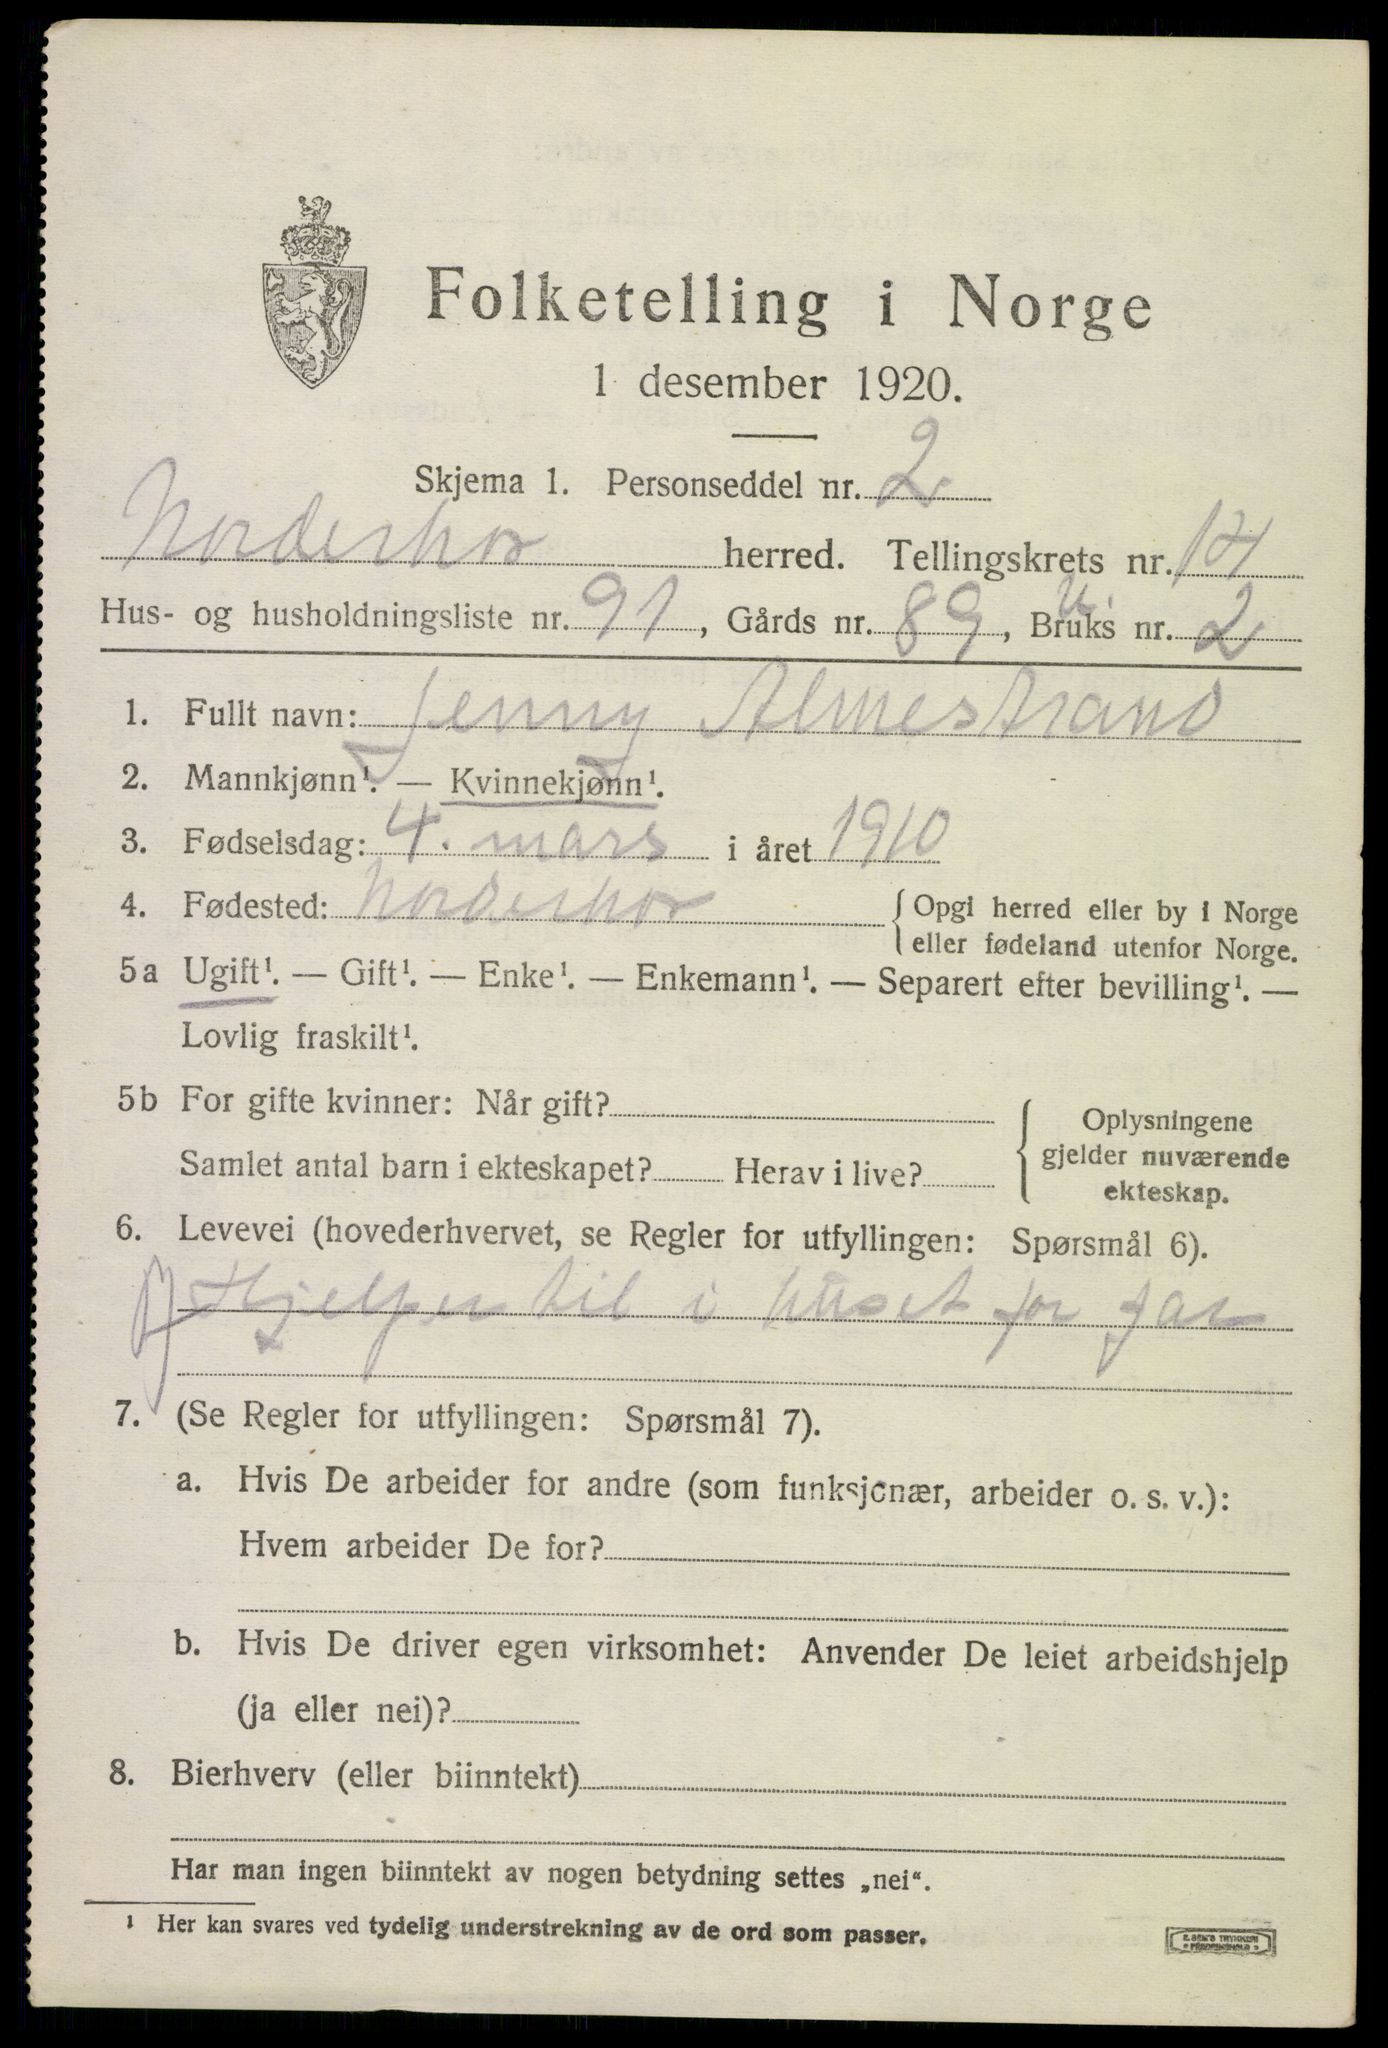 Folketelling i Norge
1 desember 1920.
Skjema 1. Personseddel nr. 2
Norderhov herred. Tellingskrets nr. 14
Hus- og husholdningsliste nr. 91, Gårds nr. 89, Bruks nr. U. 2
1. Fullt navn: Jenny Almestrand
2. Mannkjønn¹. — Kvinnekjønn¹.
3. Fødselsdag: 4. mars i året 1910
4. Fødested: Norderhov { Opgi herred eller by i Norge
eller fødeland utenfor Norge.
5a Ugift¹. — Gift¹. — Enke¹. — Enkemann¹. — Separert efter bevilling¹. —
Lovlig fraskilt¹.
5b For gifte kvinner: Når gift?
Samlet antal barn i ekteskapet? Herav i live?
{ Oplysningene
gjelder nuværende
ekteskap.
6. Levevei (hovederhvervet, se Regler for utfyllingen: Spørsmål 6).
Hjelper til i huset for far
7. (Se Regler for utfyllingen: Spørsmål 7).
a. Hvis De arbeider for andre (som funksjonær, arbeider o. s. v.):
Hvem arbeider De for?
b. Hvis De driver egen virksomhet: Anvender De leiet arbeidshjelp
(ja eller nei)?
8. Bierhverv (eller biinntekt)
Har man ingen biinntekt av nogen betydning settes „nei“.
¹ Her kan svares ved tydelig understrekning av de ord som passer.